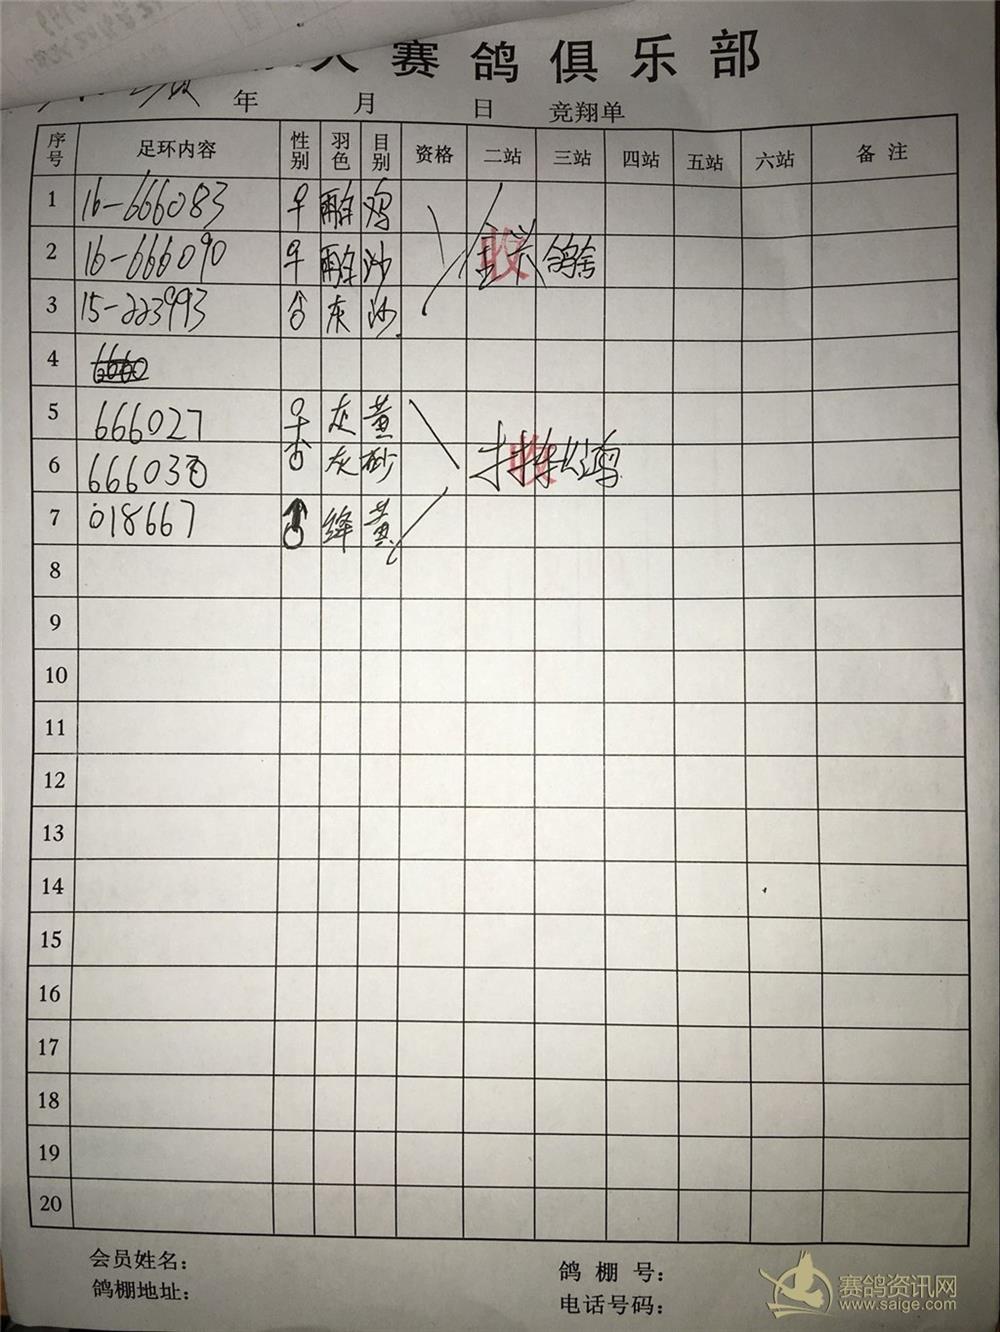 人赛鸽俱乐部
年 月 日 竞翔单
序号 足环内容 性别 羽色 目别 资格 二站 三站 四站 五站 六站 备注
1 16-666083 ♀ 雨白 鸡
2 16-666090 ♀ 雨白 沙 收 鸽舍
3 15-223993 ♂ 灰 沙
4
5 666027 ♀ 灰 黄
6 666030 ♂ 灰 砂 收
7 018667 ♂ 绛 黄
8
9
10
11
12
13
14
15
16
17
18
19
20
会员姓名：
鸽棚号：
鸽棚地址：
电话号码：
赛鸽资讯网
www.saige.com